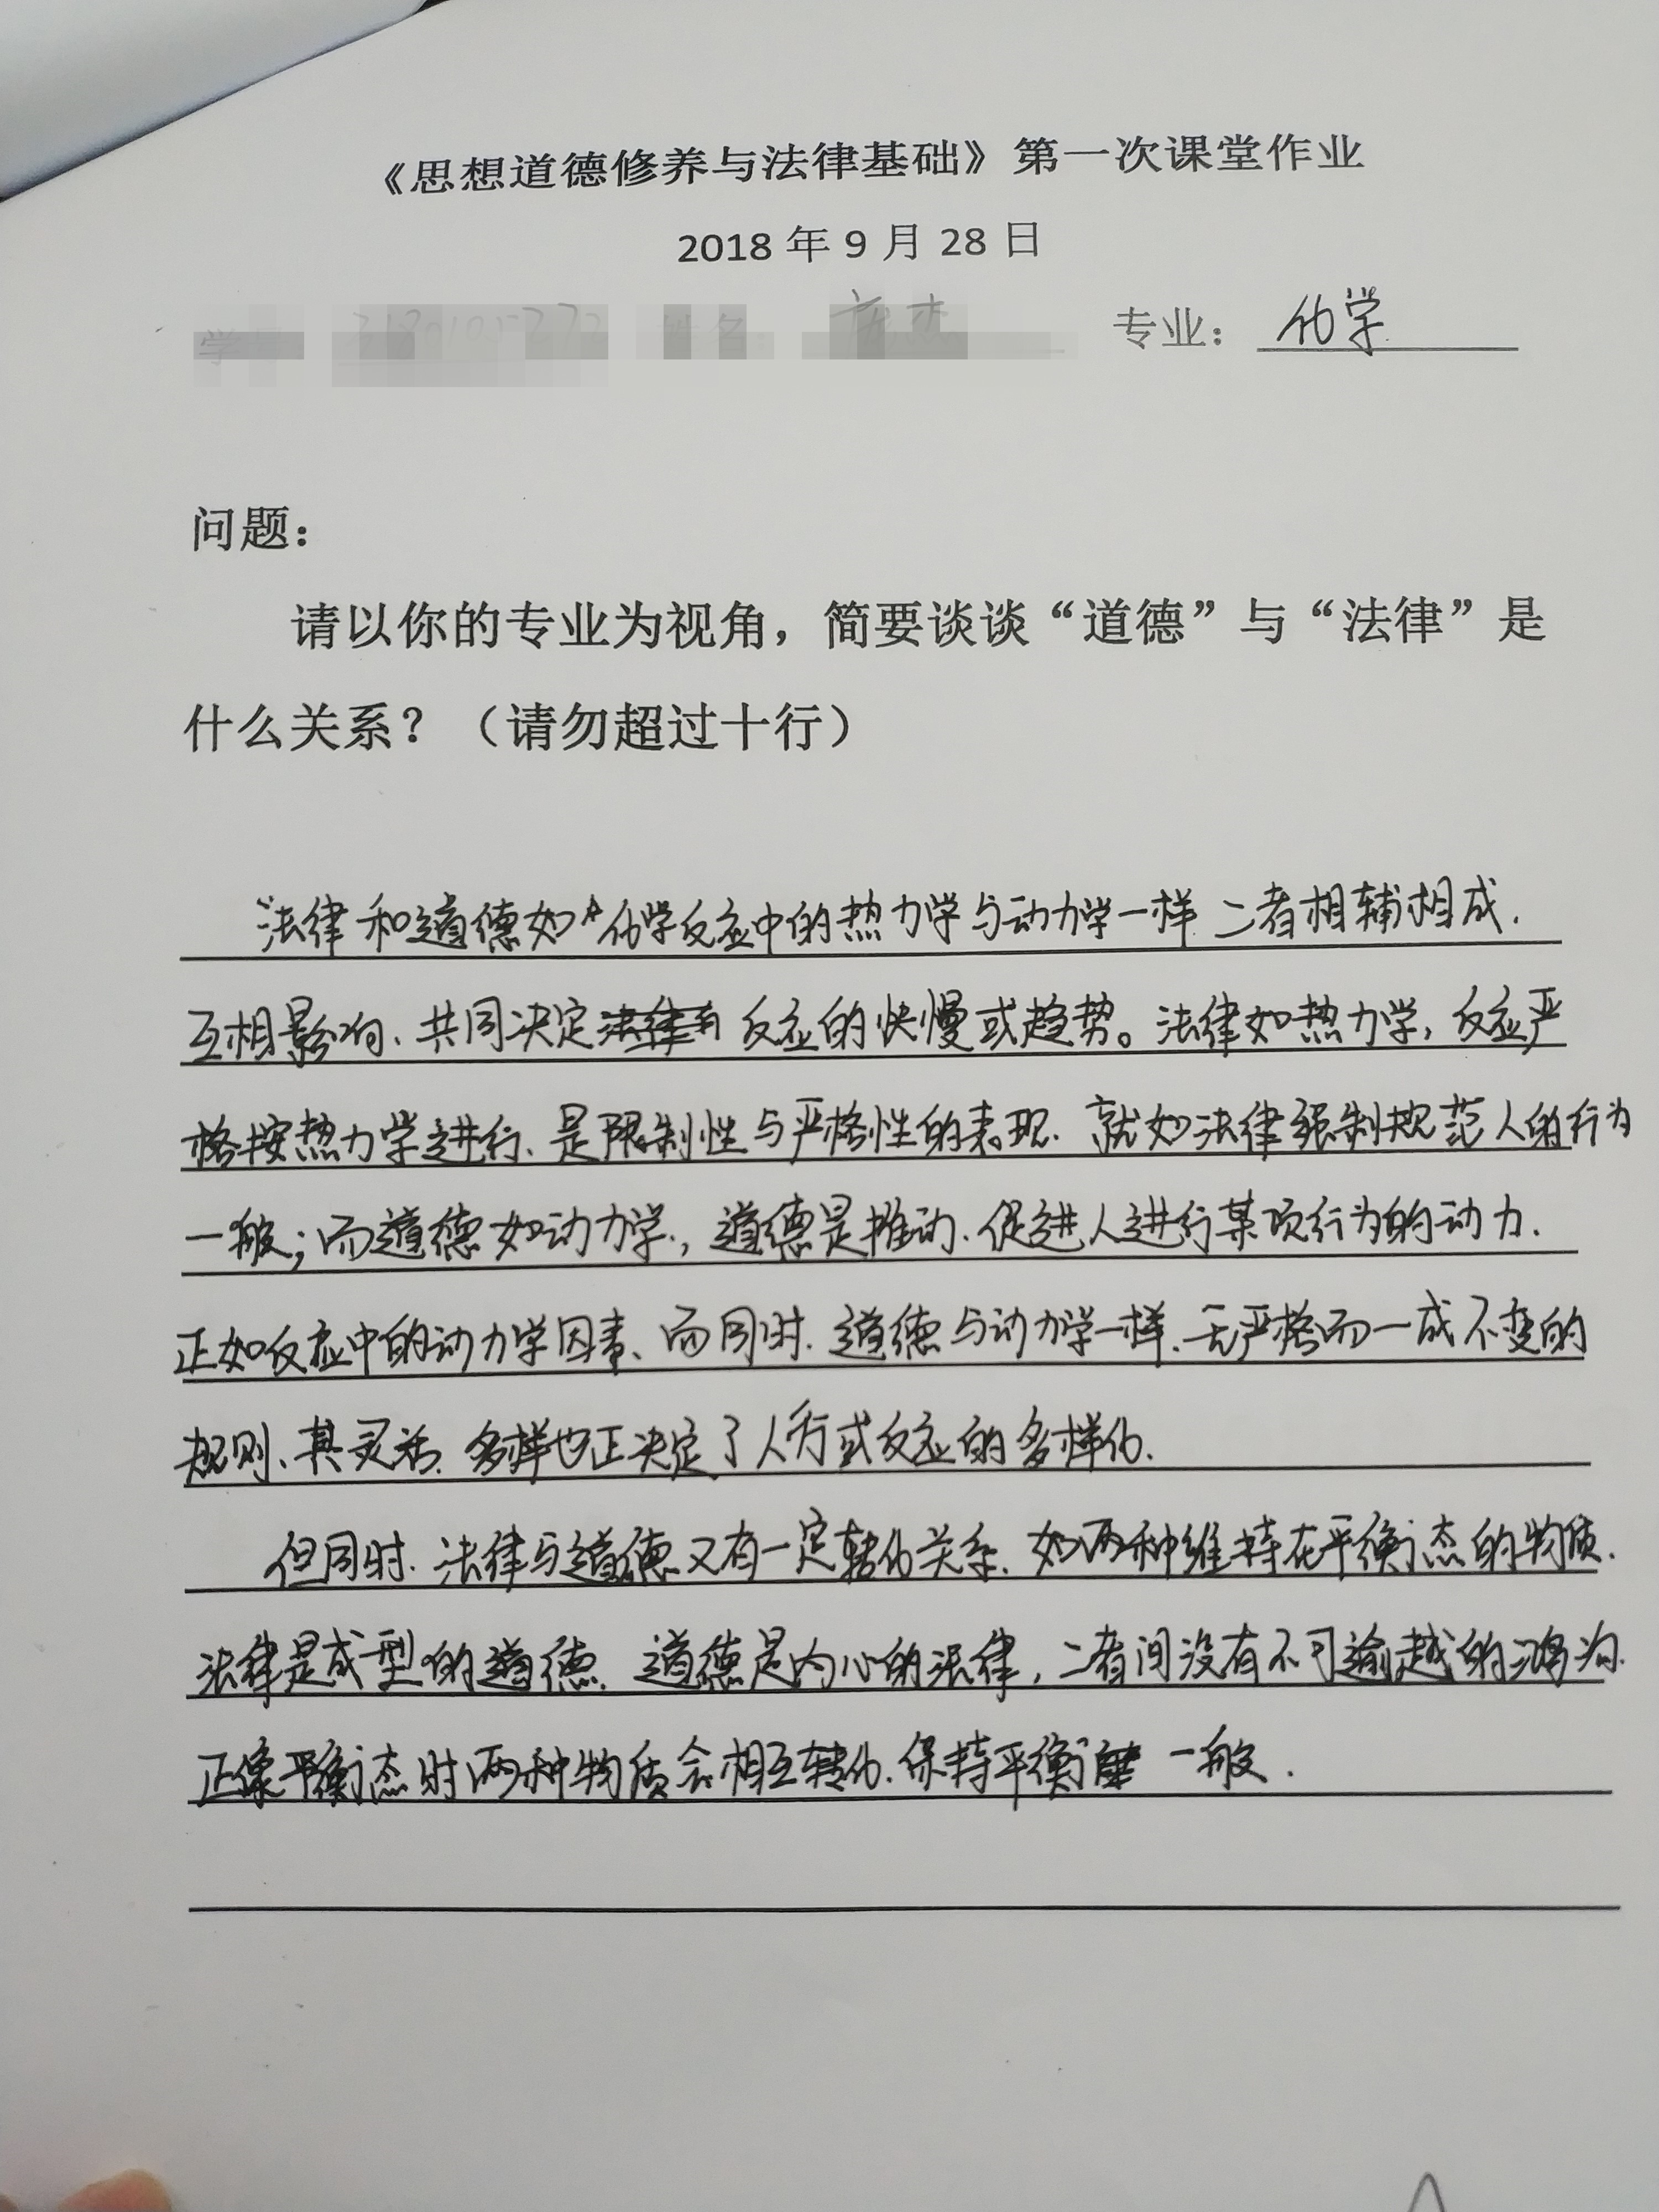 《思想道德修养与法律基础》第一次课堂作业
2018 年 9 月 28 日
专业：化学
问题：
请以你的专业为视角，简要谈谈“道德”与“法律”是
什么关系？（请勿超过十行）
法律和道德如化学反应中的热力学与动力学一样 二者相辅相成.
互相影响、共同决定 反应的快慢或趋势。法律如热力学，反应严
格按热力学进行、是限制性与严格性的表现. 就如法律强制规范人的行为
一般；而道德如动力学，道德是推动、促进人进行某项行为的动力.
正如反应中的动力学因素、而同时. 道德与动力学一样. 无严格而一成不变的
规则、其灵活. 多样也正决定了人行或反应的多样化.
但同时. 法律与道德又有一定转化关系. 如两种维持在平衡态的物质.
法律是成型的道德. 道德是内心的法律，二者间没有不可逾越的鸿沟.
正像平衡态时两种物质会相互转化.保持平衡 一般.